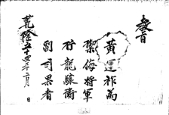 敎旨
黃運祚爲
禦侮將軍
行龍驤衛
副司果者
乾隆五十四年 月 日